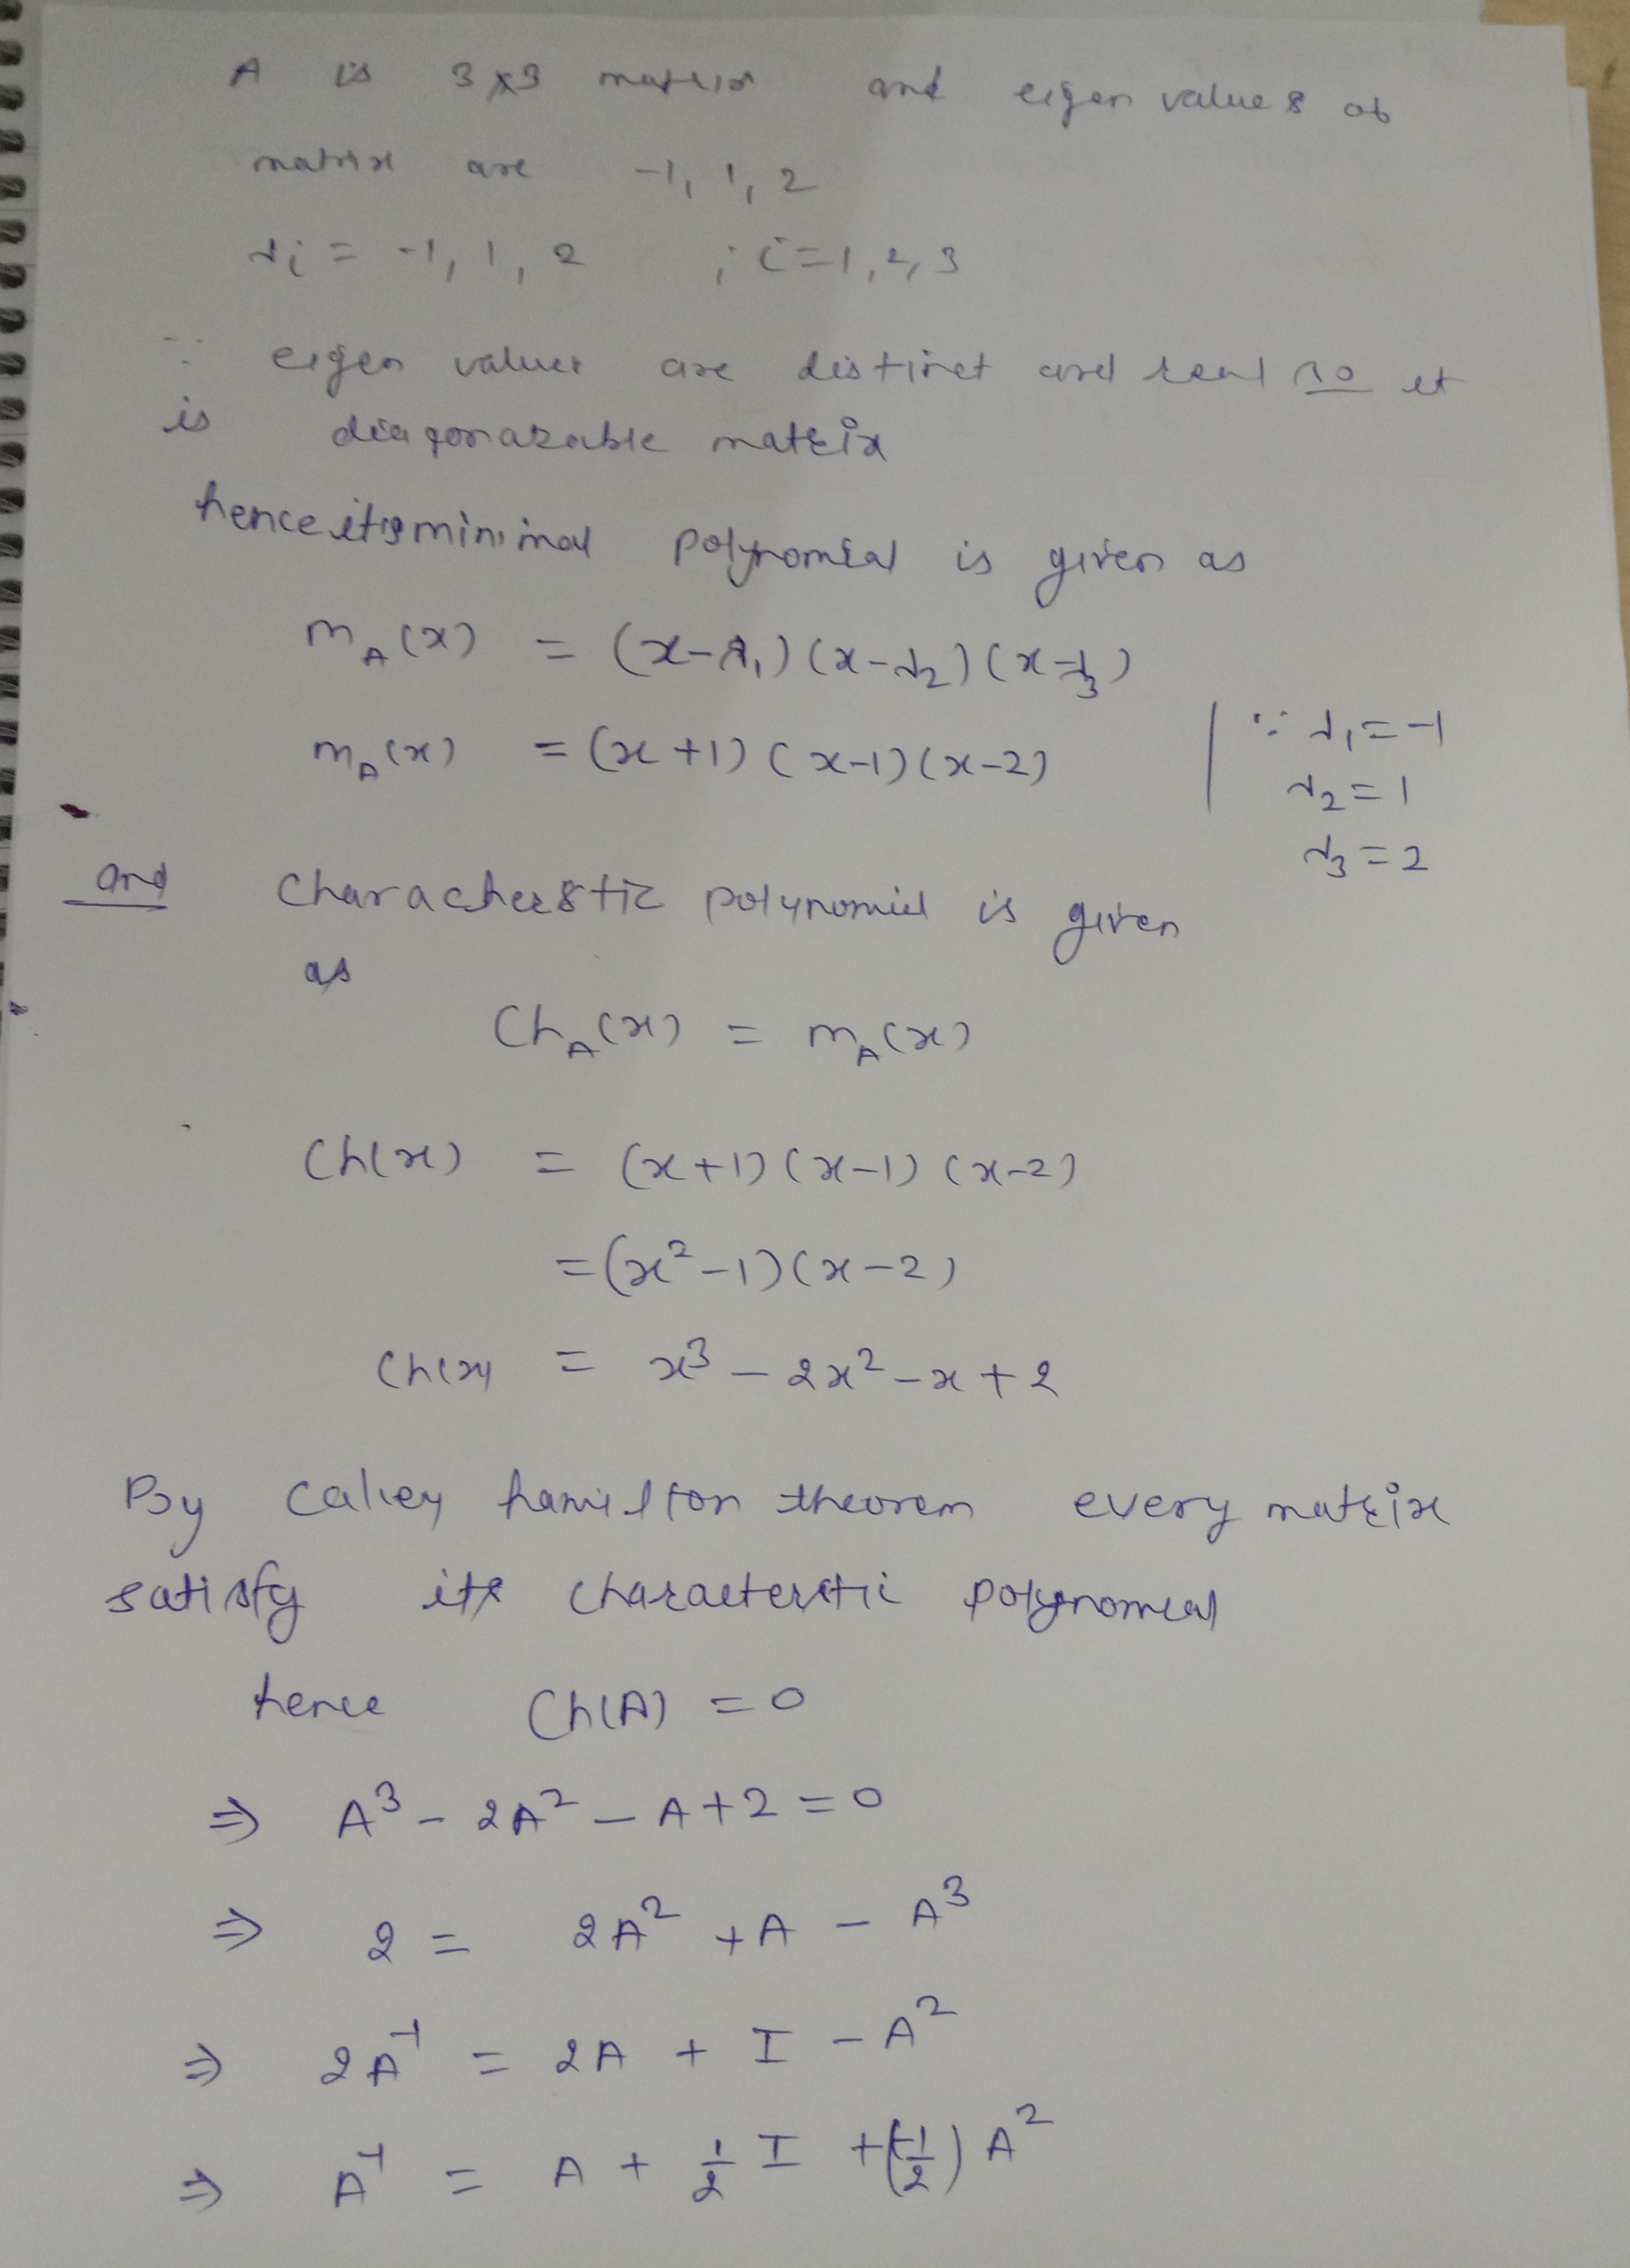 A is 3×3 matrix and eigen values of
matrix are -1, 1, 2
λi = -1, 1, 2 ; i=1,2,3
∵ eigen values are distinct and real so it
is diagonazable matrix
hence its minimal polynomial is given as
m_A(x) = (x-λ₁)(x-λ₂)(x-λ₃)
m_A(x) = (x+1)(x-1)(x-2) | ∵ λ₁=-1
λ₂=1
λ₃=2
and characterstic polynomial is given
as
Ch_A(x) = m_A(x)
Ch(x) = (x+1)(x-1)(x-2)
=(x²-1)(x-2)
Ch(x) = x³-2x²-x+2
By Caley hamilton theorem every matrix
satisfy its characterstic polynomial
hence Ch(A) =0
⇒ A³-2A²-A+2=0
⇒ 2 = 2A²+A-A³
⇒ 2A⁻¹ = 2A + I -A²
⇒ A⁻¹ = A + 1/2 I +(-1/2) A²